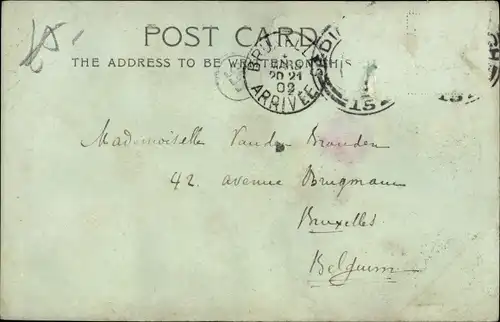 POST CARD
THE ADDRESS TO BE WRITTEN ON THIS
BRUXELL
20-21
02
ARRIVEE
15
15
Mademoiselle Vanden Branden
42. avenue Brugmann
Bruxelles
Belgium